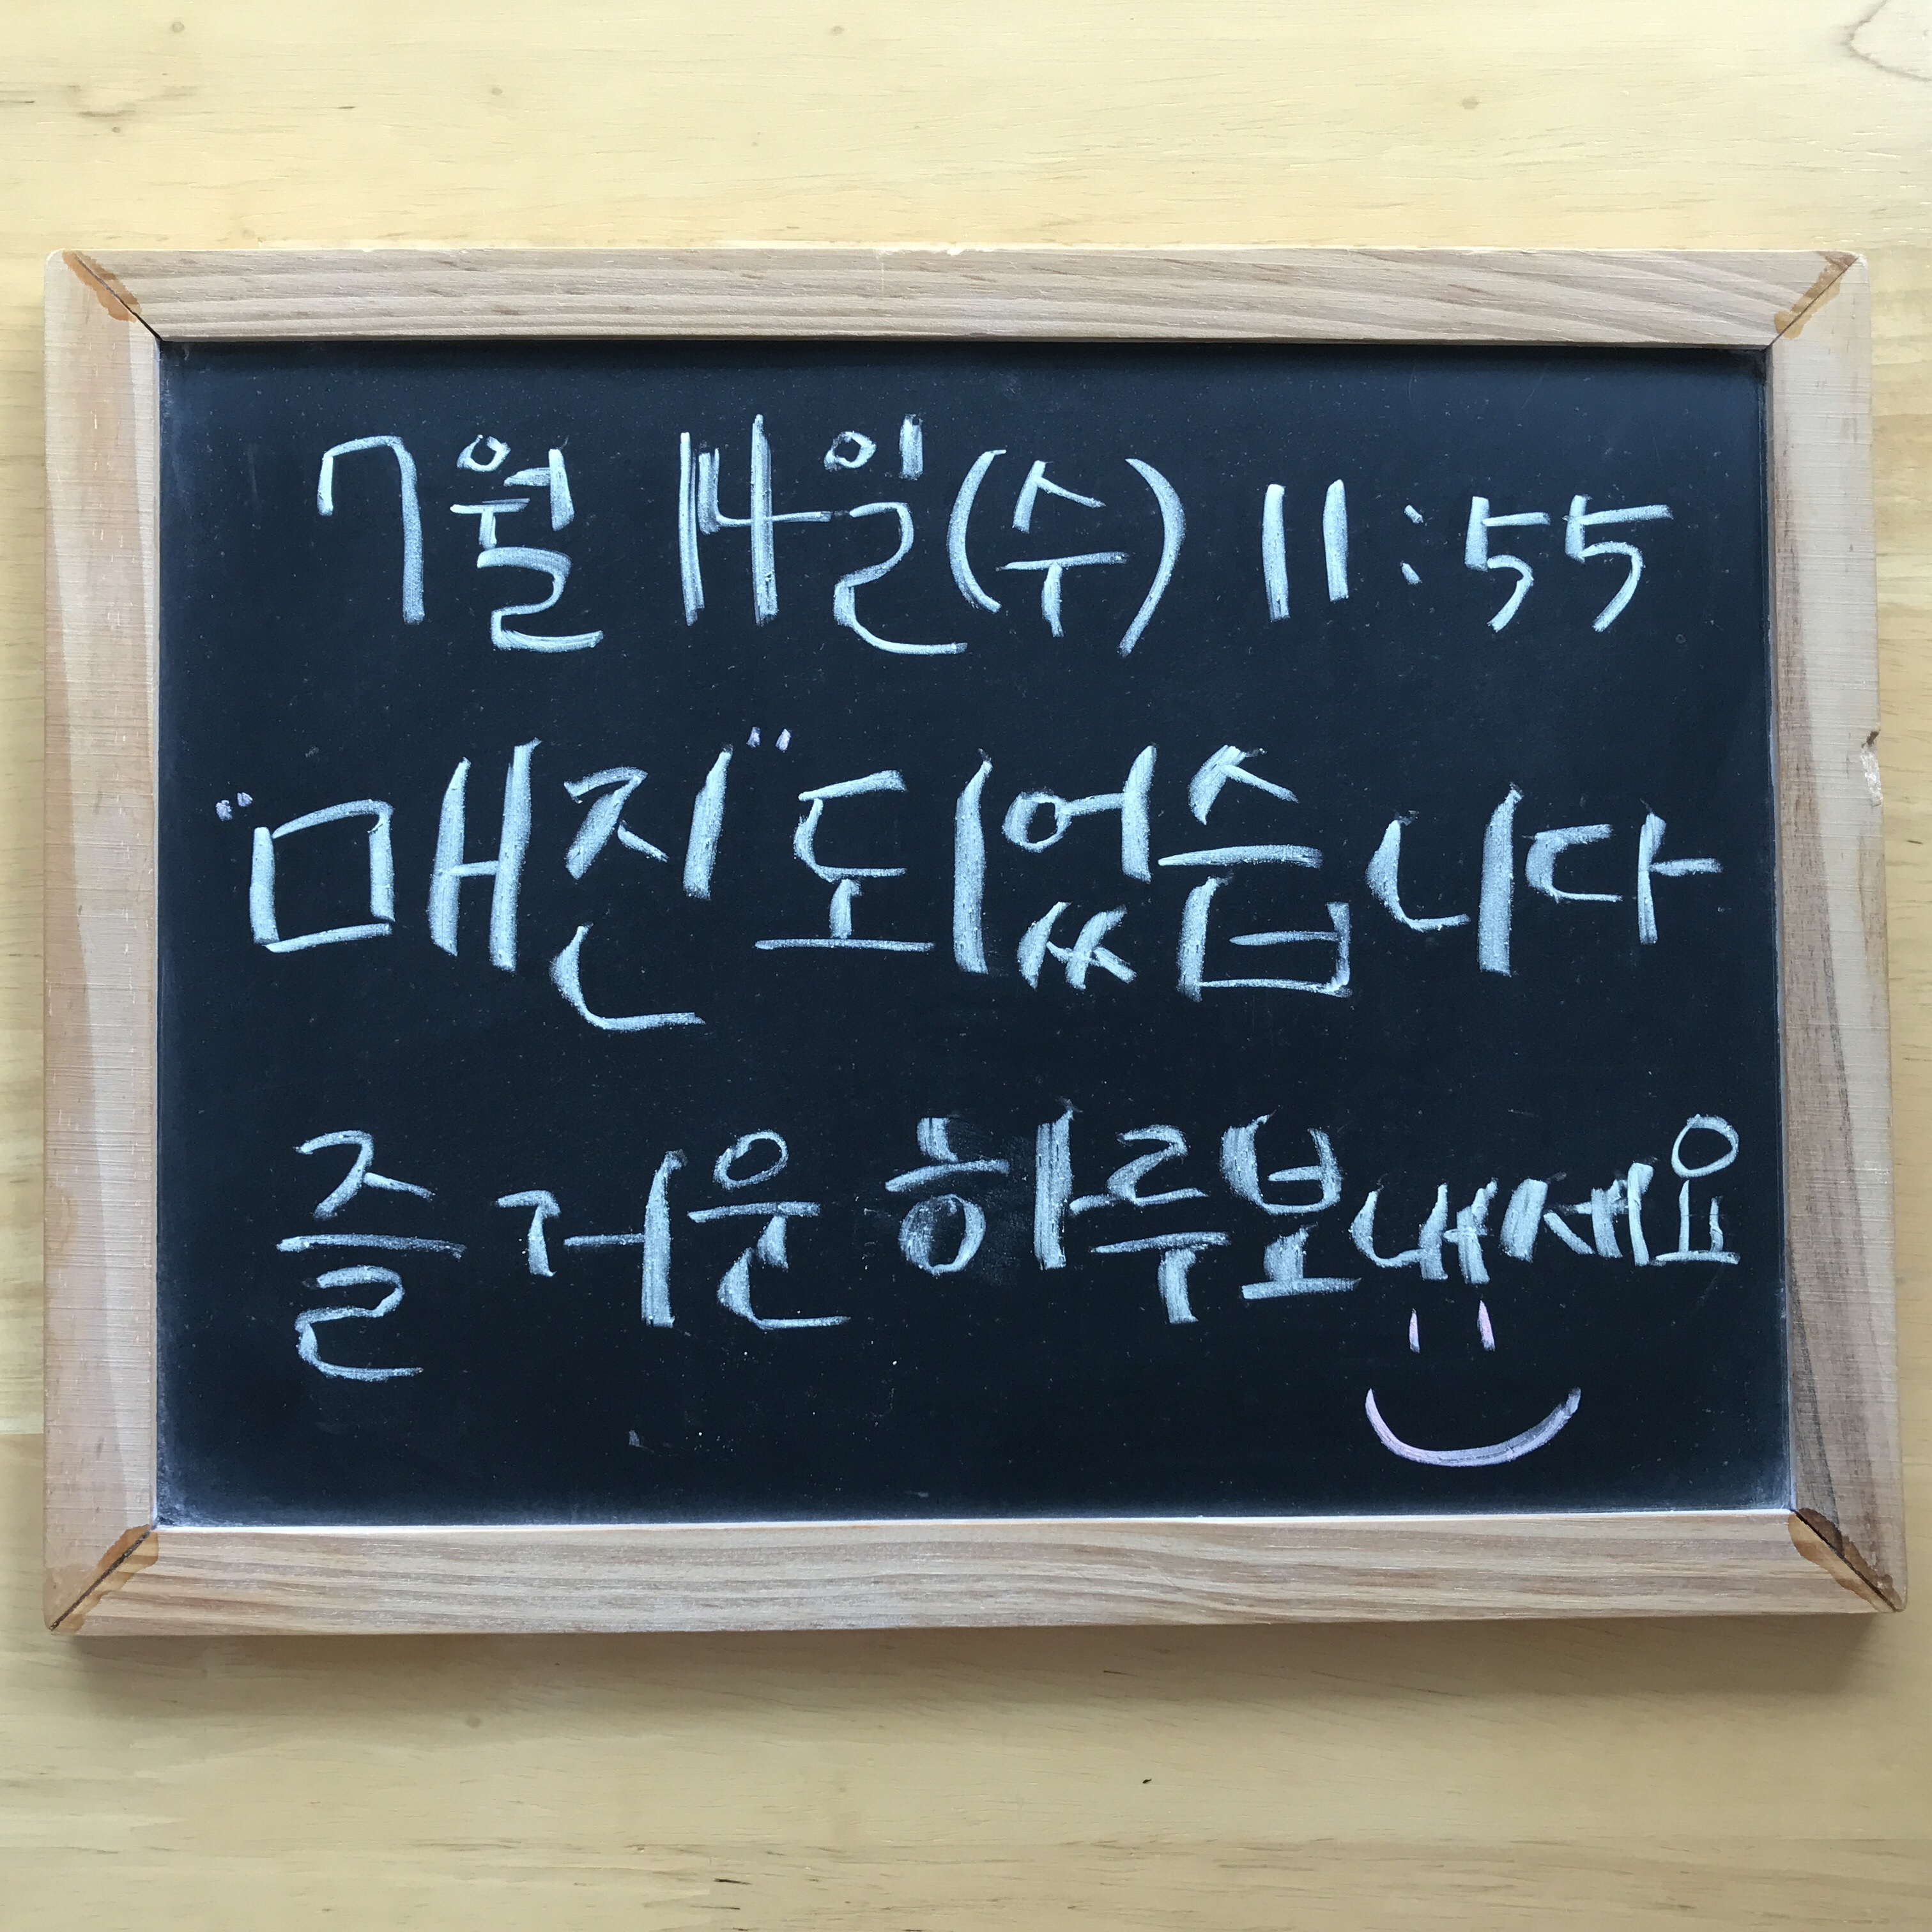 7월 14일(수) 11:55
"매진"되었습니다
즐거운 하루보내세요